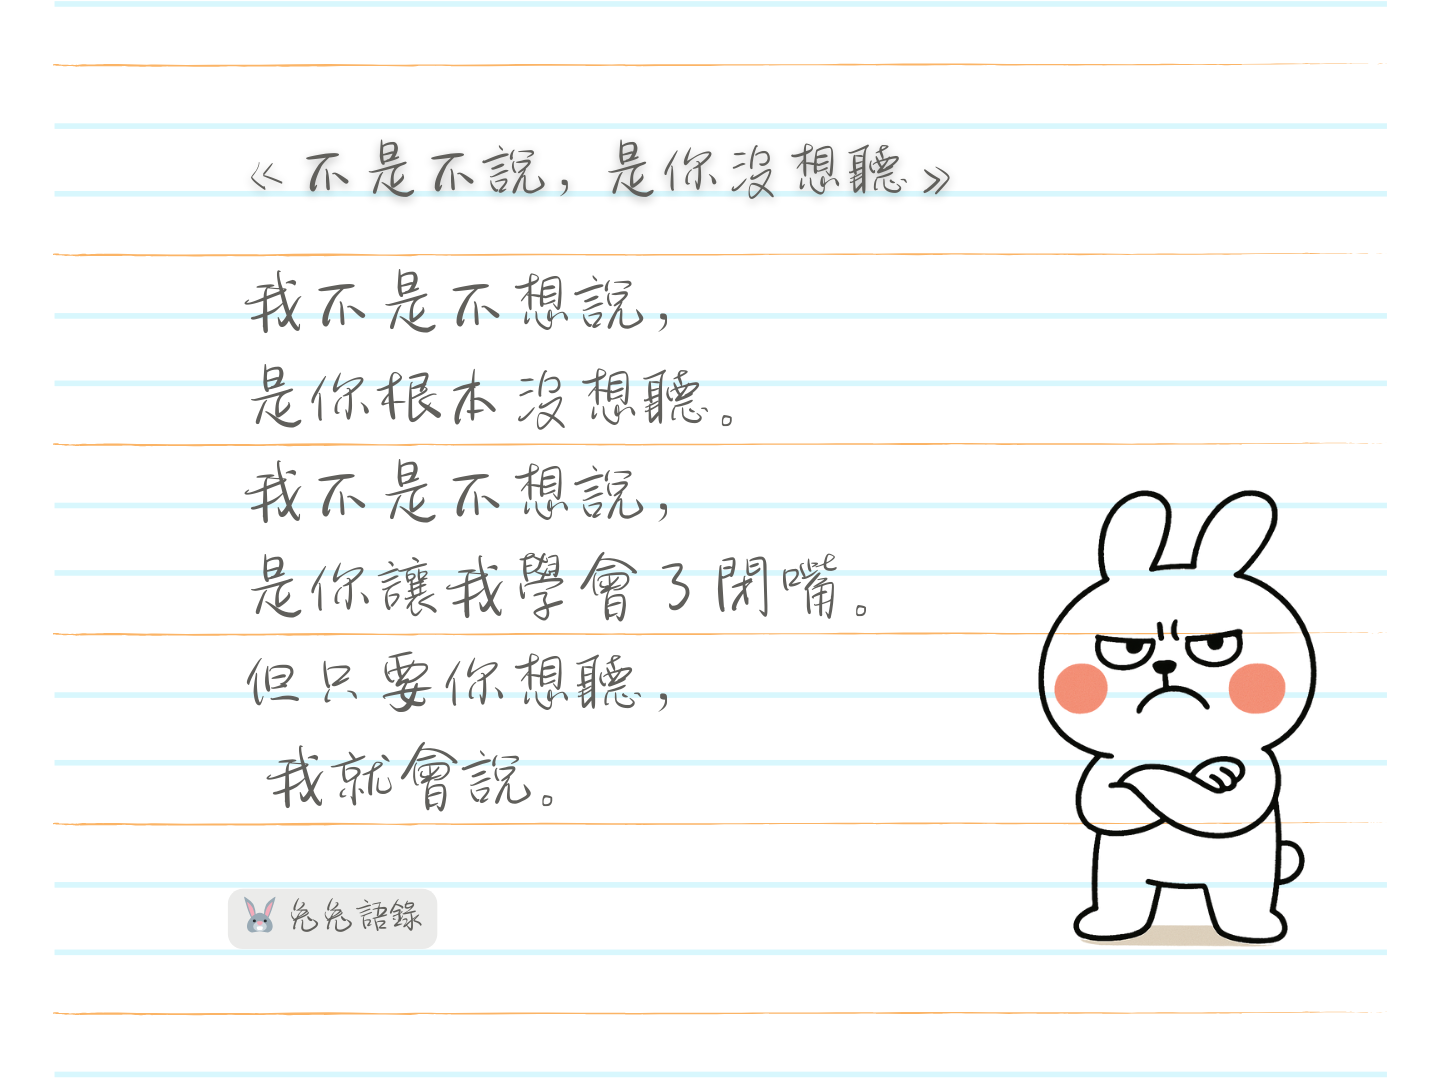 《不是不說，是你沒想聽》
我不是不想說，
是你根本沒想聽。
我不是不想說，
是你讓我學會了閉嘴。
但只要你想聽，
我就會說。
兔兔語錄